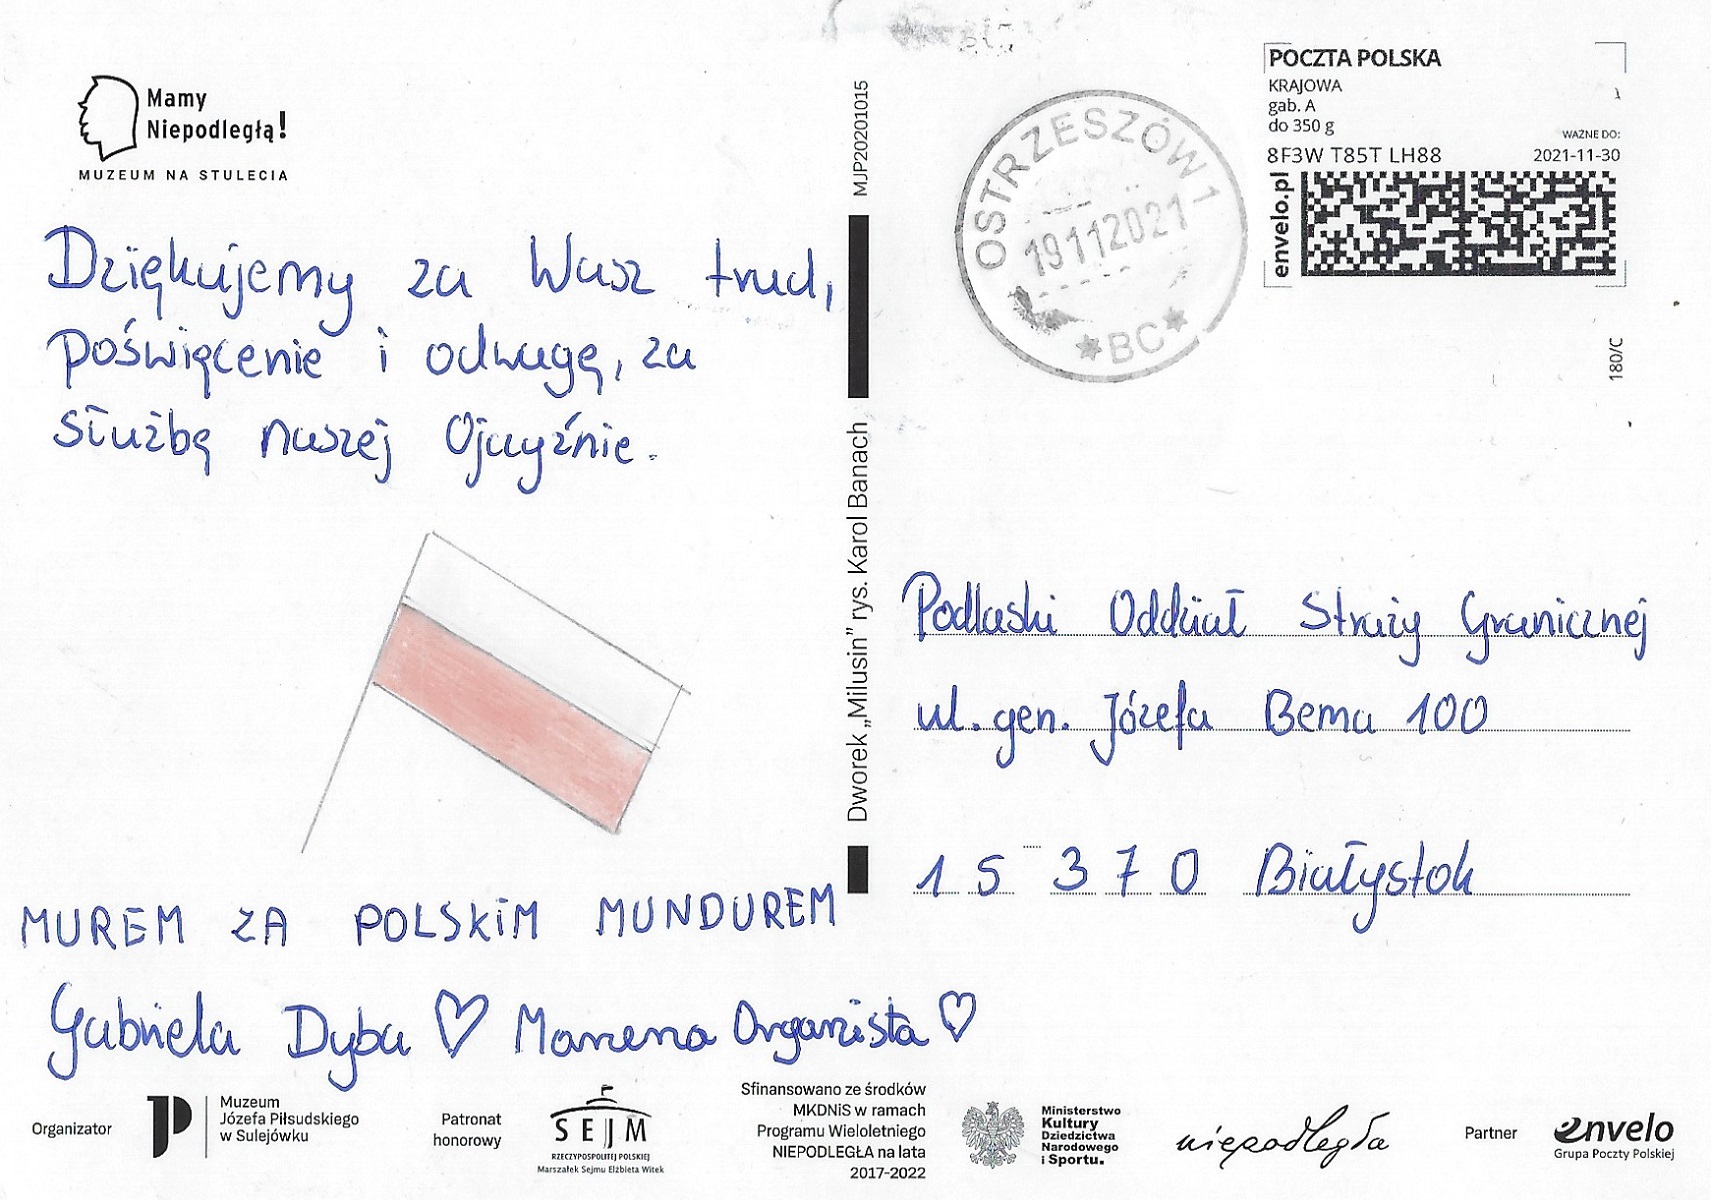 Mamy
Niepodległą!
MUZEUM NA STULECIA
Dziękujemy za Wasz trud,
poświęcenie i odwagę, za
służbę naszej Ojczyźnie.
MUREM ZA POLSKIM MUNDUREM
Gabriela Dyba ♡ Marzena Organista ♡
MJP20201015
Dworek „Milusin” rys. Karol Banach
OSTRZESZÓW 1
19112021
*BC*
POCZTA POLSKA
KRAJOWA
gab. A
do 350 g
WAŻNE DO:
8F3W T85T LH88 2021-11-30
envelo.pl
180/C
Podlaski Oddział Straży Granicznej
ul. gen. Józefa Bema 100
15 370 Białystok
Organizator
Muzeum
Józefa Piłsudskiego
w Sulejówku
Patronat
honorowy
SEJM
RZECZYPOSPOLITEJ POLSKIEJ
Marszałek Sejmu Elżbieta Witek
Sfinansowano ze środków
MKDNiS w ramach
Programu Wieloletniego
NIEPODLEGŁA na lata
2017-2022
Ministerstwo
Kultury
Dziedzictwa
Narodowego
i Sportu.
niepodległa
Partner
envelo
Grupa Poczty Polskiej